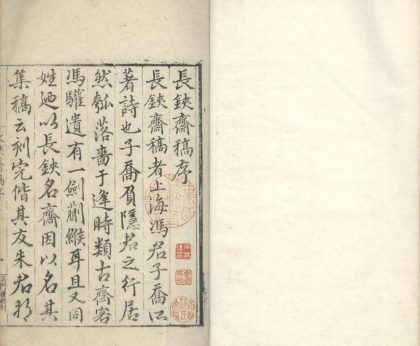 長鋏齋稿序
長鋏齋稿者上海馮君子喬所
著詩也子喬負隱君之行居
然瓠落嗇于逢時類古齊客
馮驩遺有一劍蒯緱耳且又同
姓廼以長鋏名齋因以名其
集稿云刻完偕其友朱君